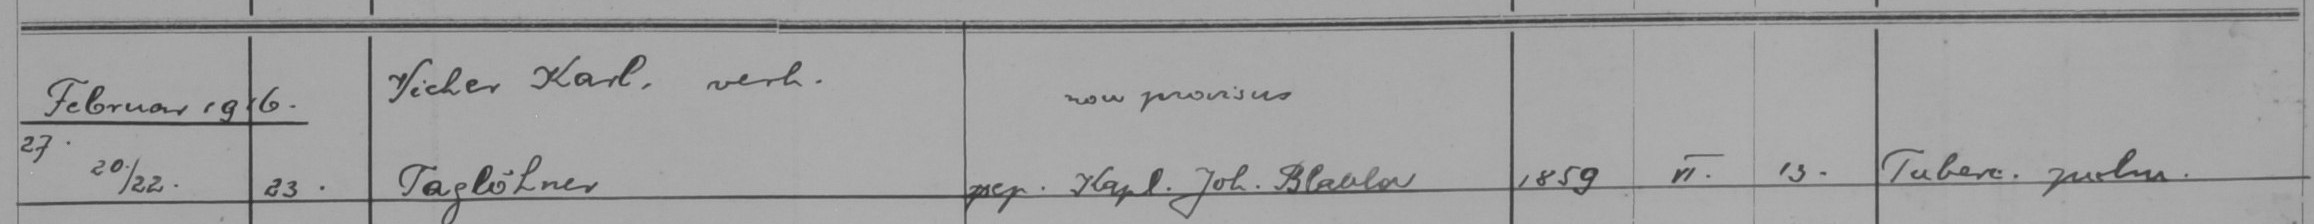 Februar 1916. Vicher Karl. verh. non provisus
27.
20./22. 23. Taglöhner sep. Kapl. Joh. 1859 VI. 13. Tuberc. pulm.